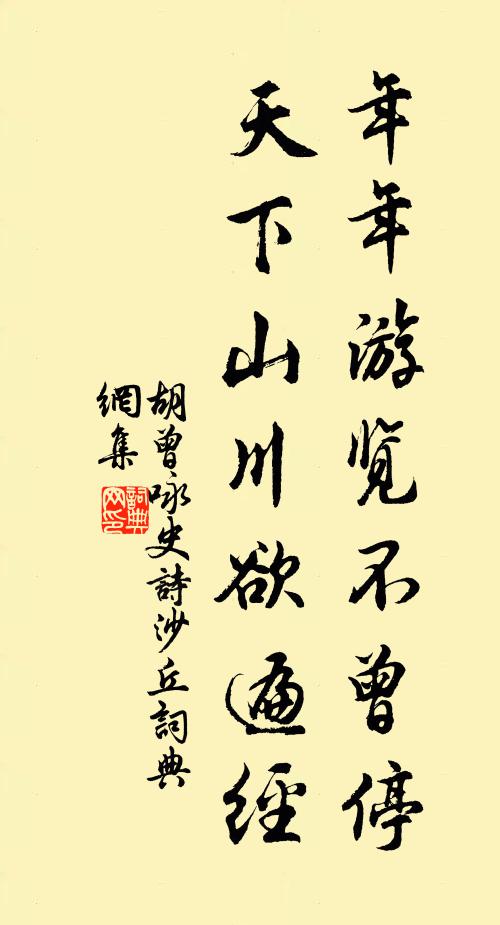 年年游览不曾停
天下山川欲遍經
胡曾咏史詩沙丘詞典
網集
詞典
网印